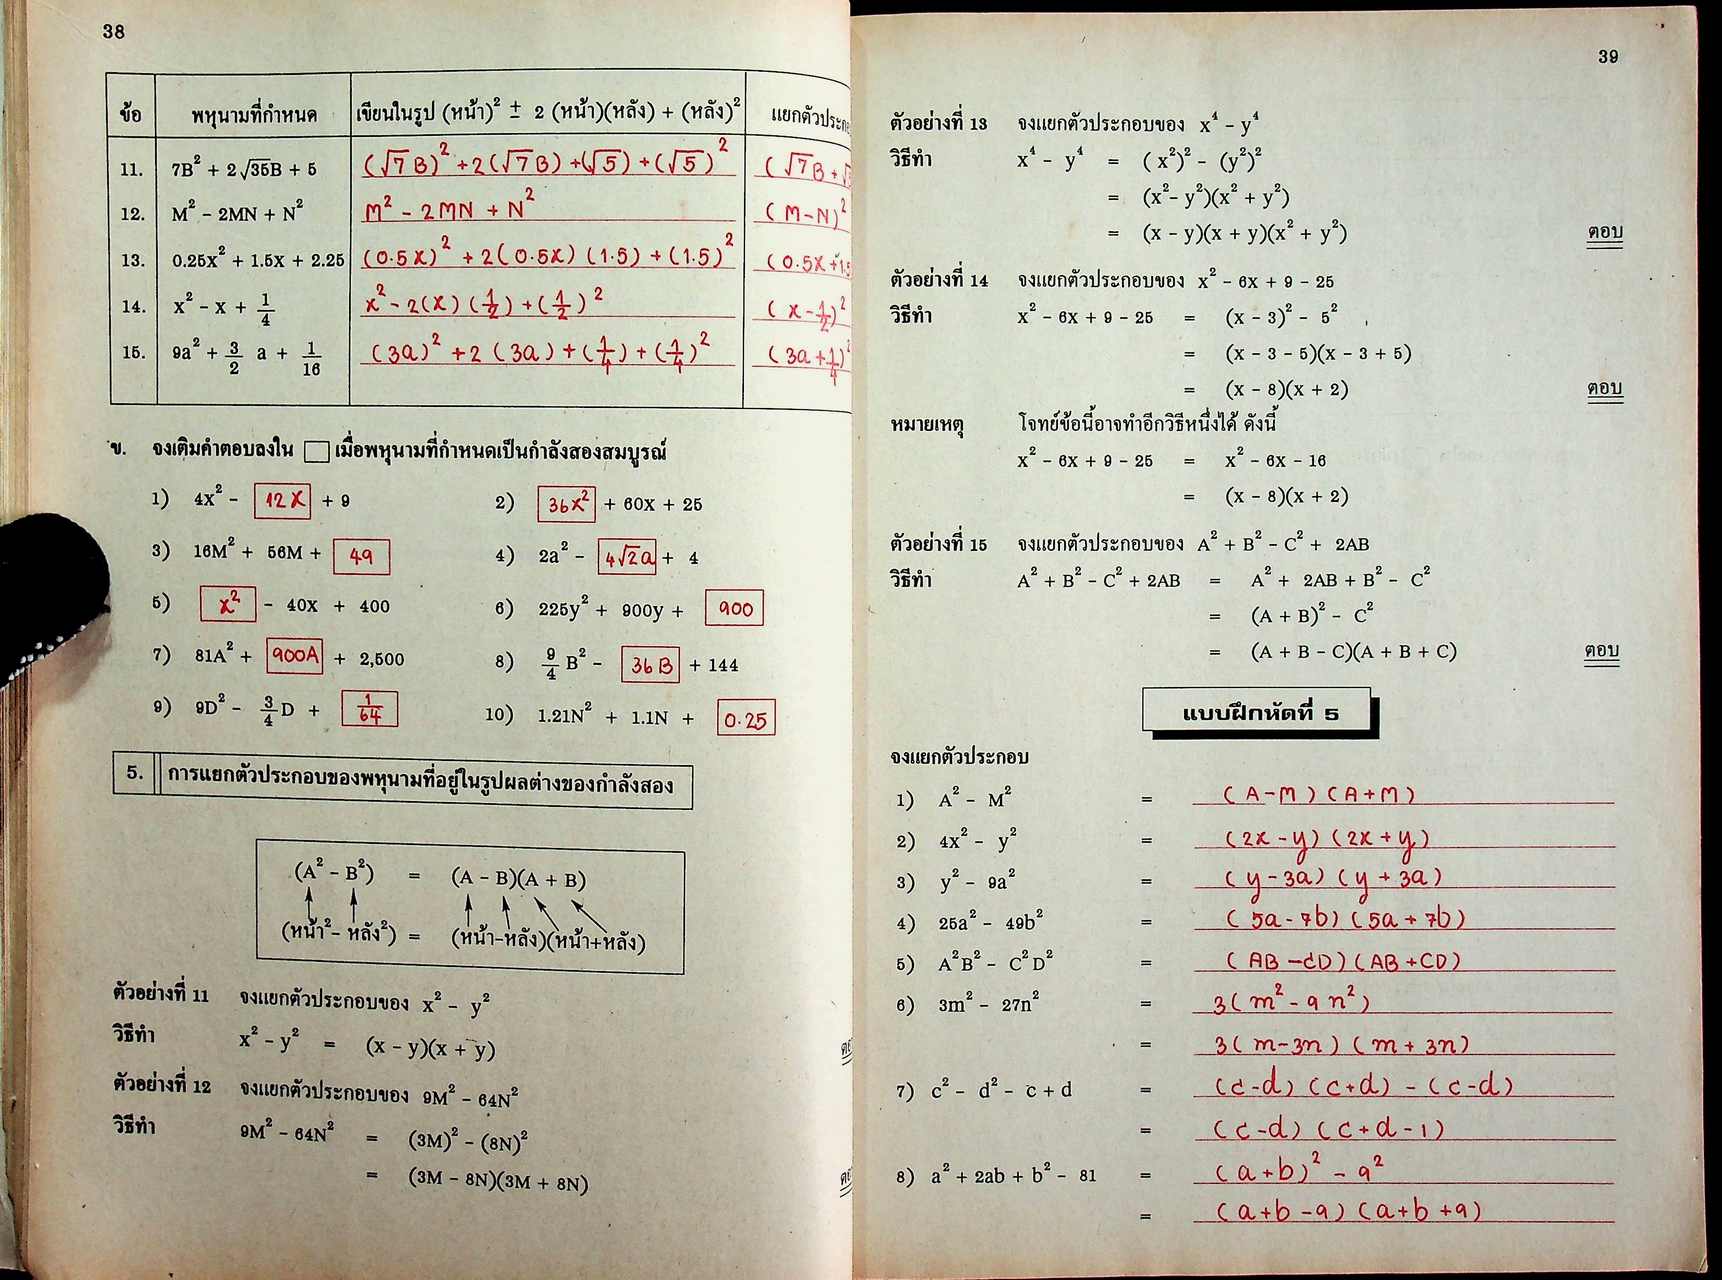 38
ข้อ พหุนามที่กำหนด เขียนในรูป (หน้า)² ± 2 (หน้า)(หลัง) + (หลัง)² แยกตัวประกอ
11. 7B² + 2√35B + 5 (√7B)² + 2(√7B) + (√5) + (√5)² (√7B + √5
12. M² - 2MN + N² M² - 2MN + N² (M-N)²
13. 0.25x² + 1.5x + 2.25 (0.5x)² + 2(0.5x)(1.5) + (1.5)² (0.5x+1.5
14. x² - x + 1/4 x² - 2(x)(1/2) + (1/2)² (x - 1/2)²
15. 9a² + 3/2 a + 1/16 (3a)² + 2(3a) + (1/4) + (1/4)² (3a + 1/4)²
ข. จงเติมคำตอบลงใน □ เมื่อพหุนามที่กำหนดเป็นกำลังสองสมบูรณ์
1) 4x² - 12x + 9 2) 36x² + 60x + 25
3) 16M² + 56M + 49 4) 2a² - 4√2a + 4
5) x² - 40x + 400 6) 225y² + 900y + 900
7) 81A² + 900A + 2,500 8) 9/4 B² - 36B + 144
9) 9D² - 3/4 D + 1/64 10) 1.21N² + 1.1N + 0.25
5. การแยกตัวประกอบของพหุนามที่อยู่ในรูปผลต่างของกำลังสอง
(A² - B²) = (A - B)(A + B)
(หน้า² - หลัง²) = (หน้า-หลัง)(หน้า+หลัง)
ตัวอย่างที่ 11 จงแยกตัวประกอบของ x² - y²
วิธีทำ x² - y² = (x - y)(x + y)
ตัวอย่างที่ 12 จงแยกตัวประกอบของ 9M² - 64N²
วิธีทำ 9M² - 64N² = (3M)² - (8N)²
= (3M - 8N)(3M + 8N)
39
ตัวอย่างที่ 13 จงแยกตัวประกอบของ x⁴ - y⁴
วิธีทำ x⁴ - y⁴ = (x²)² - (y²)²
= (x² - y²)(x² + y²)
= (x - y)(x + y)(x² + y²) ตอบ
ตัวอย่างที่ 14 จงแยกตัวประกอบของ x² - 6x + 9 - 25
วิธีทำ x² - 6x + 9 - 25 = (x - 3)² - 5²
= (x - 3 - 5)(x - 3 + 5)
= (x - 8)(x + 2) ตอบ
หมายเหตุ โจทย์ข้อนี้อาจทำอีกวิธีหนึ่งได้ ดังนี้
x² - 6x + 9 - 25 = x² - 6x - 16
= (x - 8)(x + 2)
ตัวอย่างที่ 15 จงแยกตัวประกอบของ A² + B² - C² + 2AB
วิธีทำ A² + B² - C² + 2AB = A² + 2AB + B² - C²
= (A + B)² - C²
= (A + B - C)(A + B + C) ตอบ
แบบฝึกหัดที่ 5
จงแยกตัวประกอบ
1) A² - M² = (A-M)(A+M)
2) 4x² - y² = (2x-y)(2x+y)
3) y² - 9a² = (y-3a)(y+3a)
4) 25a² - 49b² = (5a-7b)(5a+7b)
5) A²B² - C²D² = (AB-CD)(AB+CD)
6) 3m² - 27n² = 3(m²-9n²)
= 3(m-3n)(m+3n)
7) c² - d² - c + d = (c-d)(c+d) - (c-d)
= (c-d)(c+d-1)
8) a² + 2ab + b² - 81 = (a+b)² - 9²
= (a+b-9)(a+b+9)